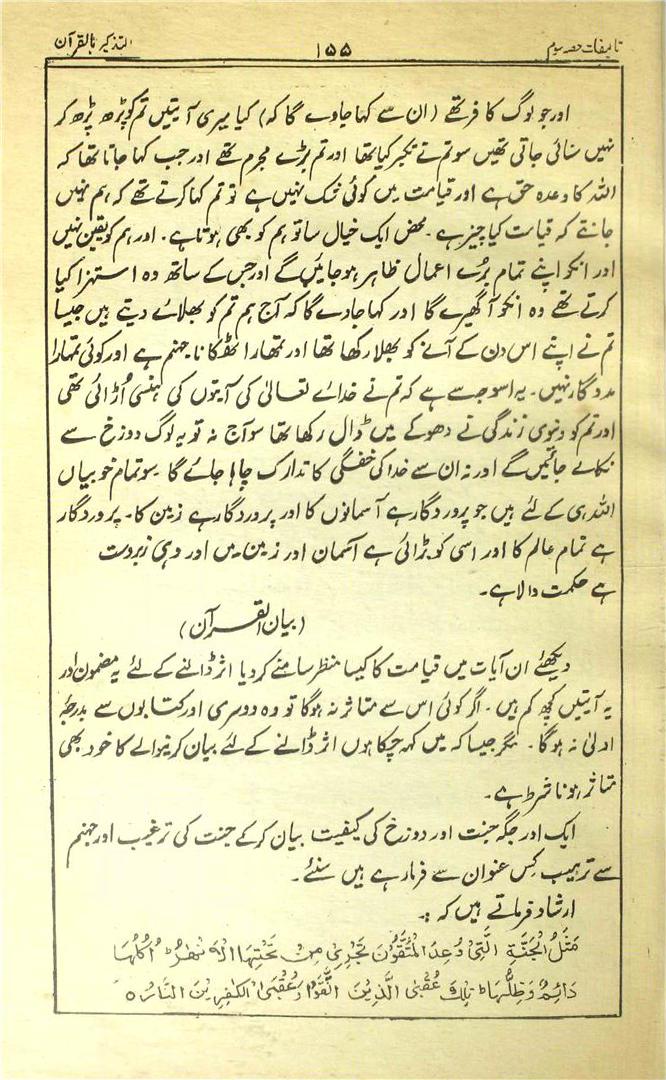 تالیفات حصہ سوم
۱۵۵
التذکیر بالقرآن
اور جو لوگ کافر تھے (ان سے کہا جاوے گا کہ) کیا میری آیتیں تم کو پڑھ پڑھ کر
نہیں سنائی جاتی تھیں سو تم نے تکبر کیا تھا اور تم بڑے مجرم تھے اور جب کہا جاتا تھا کہ
اللہ کا وعدہ حق ہے اور قیامت میں کوئی شک نہیں ہے تو تم کہا کرتے تھے کہ ہم نہیں
جانتے کہ قیامت کیا چیز ہے ۔ محض ایک خیال سا تو ہم کو بھی ہوتا ہے ۔ اور ہم کو یقین نہیں
اور انکو اپنے تمام برُے اعمال ظاہر ہو جائیں گے اور جس کے ساتھ وہ استہزا کیا
کرتے تھے وہ انکو آ گھیرے گا اور کہا جاوے گا کہ آج ہم تم کو بھلائے دیتے ہیں جیسا
تم نے اپنے اس دن کے آنے کو بھلا رکھا تھا اور تمھارا ٹھکانا جہنم ہے اور کوئی تمہارا
مددگار نہیں ۔ یہ اسوجہ سے ہے کہ تم نے خدائے تعالیٰ کی آیتوں کی ہنسی اُڑائی تھی
اور تم کو دنیوی زندگی نے دھوکے میں ڈال رکھا تھا سو آج نہ تو یہ لوگ دوزخ سے
نکالے جائیں گے اور نہ ان سے خدا کی خفگی کا تدارک چاہا جائے گا ۔ سو تمام خوبیاں
اللہ ہی کے لئے ہیں جو پروردگار ہے آسمانوں کا اور پروردگار ہے زمین کا ۔ پروردگار
ہے تمام عالم کا اور اسی کو بڑائی ہے آسمان اور زمین میں اور وہی زبردست
ہے حکمت والا ہے ۔
(بیان القرآن)
دیکھئے ان آیات میں قیامت کا کیسا منظر سامنے کر دیا اثر ڈالنے کے لئے یہ مضمون اور
یہ آیتیں کچھ کم ہیں ۔ اگر کوئی اس سے متاثر نہ ہوگا تو وہ دوسری اور کتابوں سے بدرجۂ
اولیٰ نہ ہوگا ۔ مگر جیسا کہ میں کہہ چکا ہوں اثر ڈالنے کے لئے بیان کرنیوالے کا خود بھی
متاثر ہونا شرط ہے ۔
ایک اور جگہ جنت اور دوزخ کی کیفیت بیان کر کے جنت کی ترغیب اور جہنم
سے ترہیب کس عنوان سے فرما رہے ہیں سنئے ۔
ارشاد فرماتے ہیں کہ :۔
مَثَلُ الْجَنَّةِ الَّتِیْ وُعِدَ الْمُتَّقُوْنَ تَجْرِیْ مِنْ تَحْتِهَا الْاَنْهٰرُ ؕ اُكُلُهَا
دَآئِمٌ وَّظِلُّهَا ؕ تِلْكَ عُقْبَی الَّذِیْنَ اتَّقَوْا وَّعُقْبَی الْكٰفِرِیْنَ النَّارُ ٥